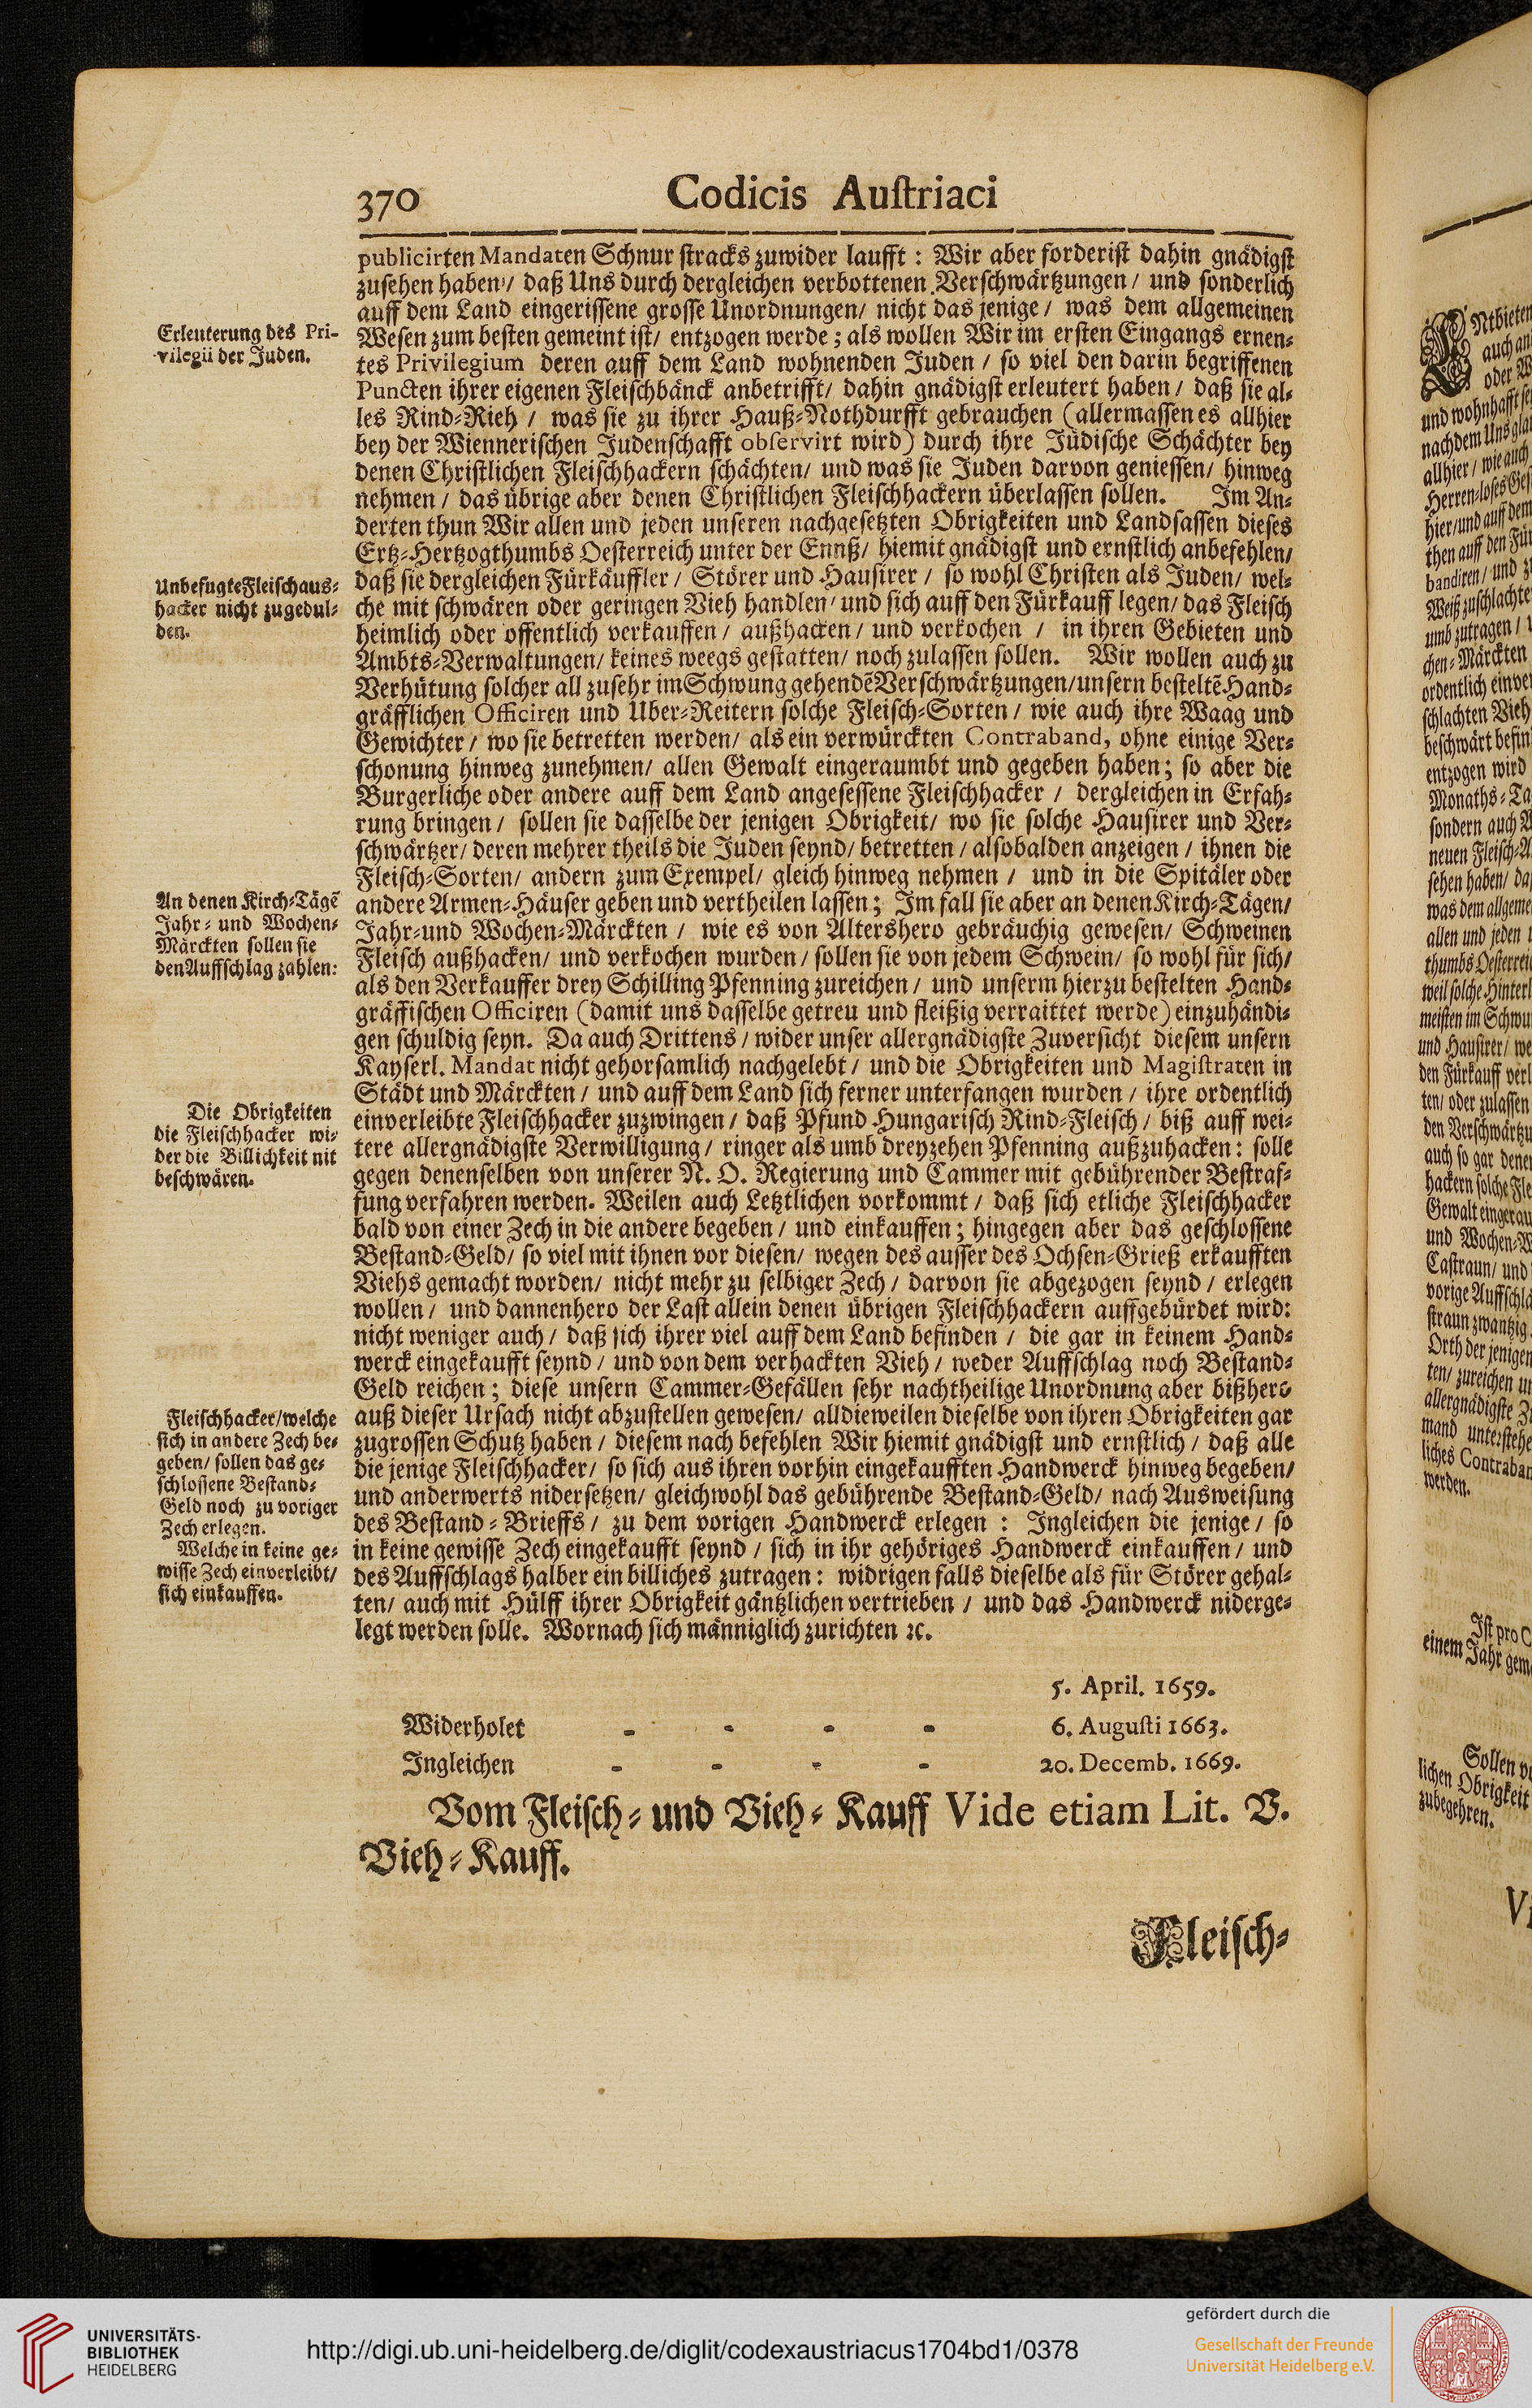 370 Codicis Auſtriaci
publicirten Mandaten Schnur ſtracks zuwider laufft : Wir aber forderiſt dahin gnädigſt
zuſehen haben / daß Uns durch dergleichen verbottenen Verſchwärtzungen / und ſonderlich
auff dem Land eingeriſſene groſſe Unordnungen / nicht das jenige / was dem allgemeinen
Erleuterung des Pri-
vilegii der Juden.
Weſen zum beſten gemeint iſt / entzogen werde ; als wollen Wir im erſten Eingangs ernen-
tes Privilegium deren auff dem Land wohnenden Juden / ſo viel den darin begriffenen
Puncten ihrer eigenen Fleiſchbänck anbetrifft / dahin gnädigſt erleutert haben / daß ſie al-
les Rind-Rieh / was ſie zu ihrer Hauß-Nothdurfft gebrauchen (allermaſſen es allhier
bey der Wiennerischen Judenſchafft obſervirt wird) durch ihre Jüdiſche Schächter bey
denen Chriſtlichen Fleiſchhackern ſchächten / und was ſie Juden darvon genieſſen / hinweg
nehmen / das übrige aber denen Chriſtlichen Fleiſchhackern überlaſſen ſollen. Im An-
derten thun Wir allen und jeden unſeren nachgeſetzten Obrigkeiten und Landſaſſen dieſes
Ertz-Hertzogthumbs Oeſterreich unter der Ennß / hiemit gnädigſt und ernſtlich anbefehlen /
Unbefugte Fleiſchaus-
hacker nicht zugedul-
den.
daß ſie dergleichen Fürkäuffler / Störer und Hauſirer / ſo wohl Chriſten als Juden / wel-
che mit ſchwären oder geringen Vieh handlen / und ſich auff den Fürkauff legen / das Fleiſch
heimlich oder offentlich verkauffen / außhacken / und verkochen / in ihren Gebieten und
Ambts-Verwaltungen / keines weegs geſtatten / noch zulaſſen ſollen. Wir wollen auch zu
Verhütung ſolcher all zuſehr im Schwung gehendẽ Verſchwärtzungen / unſern beſteltẽ Hand-
gräfflichen Officiren und Uber-Reitern ſolche Fleiſch-Sorten / wie auch ihre Waag und
Gewichter / wo ſie betretten werden / als ein verwürckten Contraband, ohne einige Ver-
ſchonung hinweg zunehmen / allen Gewalt eingeraumbt und gegeben haben ; ſo aber die
Burgerliche oder andere auff dem Land angeſeſſene Fleiſchhacker / dergleichen in Erfah-
rung bringen / ſollen ſie daſſelbe der jenigen Obrigkeit / wo ſie ſolche Hauſirer und Ver-
ſchwärtzer / deren mehrer theils die Juden ſeynd / betretten / alſobalden anzeigen / ihnen die
Fleiſch-Sorten / andern zum Exempel / gleich hinweg nehmen / und in die Spitäler oder
An denen Kirch-Tägẽ
Jahr- und Wochen-
Märckten ſollen ſie
den Auffſchlag zahlen:
andere Armen-Häuſer geben und vertheilen laſſen ; Im fall ſie aber an denen Kirch-Tägen /
Jahr-und Wochen-Märckten / wie es von Altershero gebräuchig geweſen / Schweinen
Fleiſch außhacken / und verkochen wurden / ſollen ſie von jedem Schwein / ſo wohl für ſich /
als den Verkauffer drey Schilling Pfenning zureichen / und unſerm hierzu beſtelten Hand-
gräffiſchen Officiren (damit uns daſſelbe getreu und fleißig verraittet werde) einzuhändi-
gen ſchuldig ſeyn. Da auch Drittens / wider unſer allergnädigſte Zuverſicht dieſem unſern
Kayſerl. Mandat nicht gehorſamlich nachgelebt / und die Obrigkeiten und Magiſtraten in
Städt und Märckten / und auff dem Land ſich ferner unterfangen wurden / ihre ordentlich
Die Obrigkeiten
die Fleiſchhacker wi-
der die Billichkeit nit
beſchwären.
einverleibte Fleiſchhacker zuzwingen / daß Pfund Hungariſch Rind-Fleiſch / biß auff wei-
tere allergnädigſte Verwilligung / ringer als umb dreyzehen Pfenning außzuhacken : ſolle
gegen denenſelben von unſerer N. O. Regierung und Cammer mit gebührender Beſtraf-
fung verfahren werden. Weilen auch Letztlichen vorkommt / daß ſich etliche Fleiſchhacker
bald von einer Zech in die andere begeben / und einkauffen ; hingegen aber das geſchloſſene
Beſtand-Geld / ſo viel mit ihnen vor dieſen / wegen des auſſer des Ochſen-Grieß erkaufften
Viehs gemacht worden / nicht mehr zu ſelbiger Zech / darvon ſie abgezogen ſeynd / erlegen
wollen / und dannenhero der Laſt allein denen übrigen Fleiſchhackern auffgebürdet wird:
nicht weniger auch / daß ſich ihrer viel auff dem Land befinden / die gar in keinem Hand-
werck eingekaufft ſeynd / und von dem verhackten Vieh / weder Auffſchlag noch Beſtand-
Geld reichen ; dieſe unſern Cammer-Gefällen ſehr nachtheilige Unordnung aber bißhero
Fleiſchhacker / welche
ſich in andere Zech be-
geben / ſollen das ge-
ſchloſſene Beſtand-
Geld noch zu voriger
Zech erlegen.
Welche in keine ge-
wiſſe Zech einverleibt /
ſich einkauffen.
auß dieſer Urſach nicht abzuſtellen geweſen / alldieweilen dieſelbe von ihren Obrigkeiten gar
zugroſſen Schutz haben / dieſem nach befehlen Wir hiemit gnädigſt und ernſtlich / daß alle
die jenige Fleiſchhacker / ſo ſich aus ihren vorhin eingekaufften Handwerck hinweg begeben /
und anderwerts niderſetzen / gleichwohl das gebührende Beſtand-Geld / nach Ausweiſung
des Beſtand-Brieffs / zu dem vorigen Handwerck erlegen : Ingleichen die jenige / ſo
in keine gewiſſe Zech eingekaufft ſeynd / ſich in ihr gehöriges Handwerck einkauffen / und
des Auffſchlags halber ein billiches zutragen : widrigen falls dieſelbe als für Störer gehal-
ten / auch mit Hülff ihrer Obrigkeit gäntzlichen vertrieben / und das Handwerck niderge-
legt werden ſolle. Wornach ſich männiglich zurichten ꝛc.
5. April. 1659.
Widerholet - - - - 6. Auguſti 1663.
Ingleichen - - - - 20. Decemb. 1669.
Vom Fleiſch- und Vieh-Kauff Vide etiam Lit. V.
Vieh-Kauff.
Fleiſch-
Ntbieten
auch an
oder
und wohnhafft
nachdem Uns
allhier / wie auch
Herren-loſes
hier / und auff dem
then auff den Für
bandiren / und
Weiß zuſchlachte
umb zutragen /
chen-Märckten
ordentlich einver
ſchlachten Vieh
beſchwärt befin
entzogen wird
Monaths-Ta
ſondern auch
neuen Fleiſch-A
ſehen haben / da
was dem allgeme
allen und jeden
thumbs Oeſterrei
weil ſolche Hinterl
meiſten im Schwu
und Hauſirer / we
den Fürkauff verl
ten / oder zulaſſen
den Verſchwärtzu
auch ſo gar denen
hackern ſolche Fle
Gewalt eingerau
und Wochen-M
Caſtraun / und
vorige Auffſchla
ſtraun zwantzig
Orth der jenigen
ten / zureichen un
allergnädigſte Z
mand unterſtehe
liches Contraban
werden.
Iſt pro C
einem Jahr gem
Sollen v
lichen Obrigkeit
zubegehren.
UNIVERSITÄTS-
BIBLIOTHEK
HEIDELBERG
http://digi.ub.uni-heidelberg.de/diglit/codexaustriacus1704bd1/0378
gefördert durch die
Gesellschaft der Freunde
Universität Heidelberg e.V.